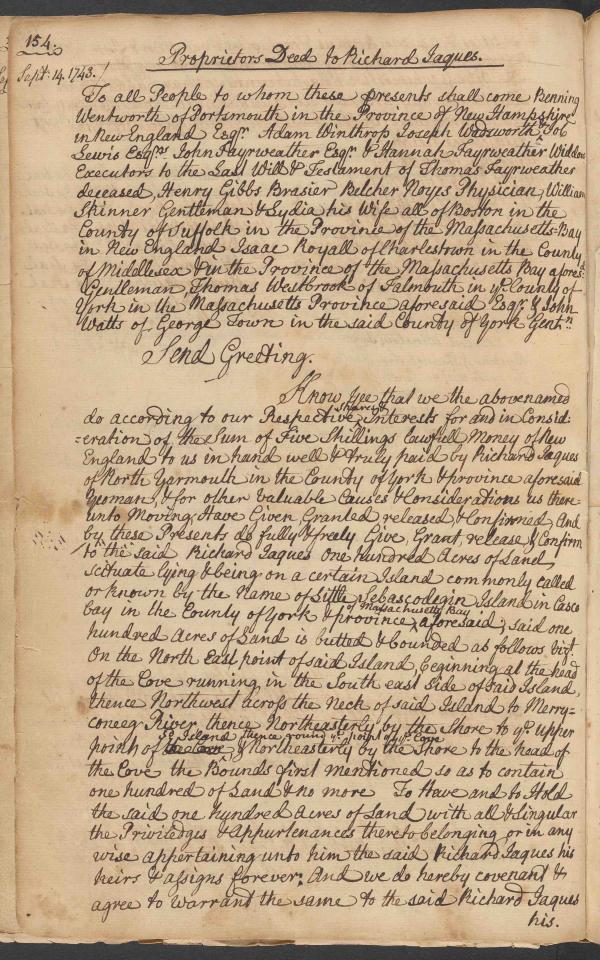 154.
Proprietors Deed to Richard Jaques.
Sept: 14. 1743.
To all People to whom these presents shall come Benning
Wentworth of Portsmouth in the Province of New Hampshire
in New England Esqr. Adam Winthrop Joseph Wadsworth & Job
Lewis Esqrs. John Fayrweather Esqr. & Hannah Fayrweather Widdow
Executors to the Last Will & Testament of Thomas Fayrweather
deceased, Henry Gibbs Brasier Belcher Noyes Physician, William
Skinner Gentleman & Lydia his Wife all of Boston in the
County of Suffolk in the Province of the Massachusetts-Bay
in New England Isaac Royall of Charlestown in the County
of Middlesex & in the Province of the Massachusetts Bay afores:d
Gentleman, Thomas Westbrook of Falmouth in ye. County of
York in the Massachusetts Province aforesaid Esqr. & John
Watts of George Town in the said County of York Gentn.
Send Greeting.
Know Yee that we the abovenamed
do according to our Respective shares & Interests for and in Consid:
=eration of the Sum of Five Shillings lawfull Money of New
England to us in hand well & truly paid by Richard Jaques
of North Yarmouth in the County of York & province aforesaid
Yeoman, & for other valuable Causes & Considerations us there
unto Moving, Have Given Granted released & Confirmed, And
by these Presents do fully & freely Give, Grant, release, & Confirm
to the said Richard Jaques One hundred Acres of Land
scituate lying & being on a certain Island commonly called
or known by the name of Little Sebascodegin Island in Casco
bay in the County of York & province of Massachusetts Bay aforesaid, said one
hundred Acres of Land is butted & bounded as follows vizt.
On the North East point of said Island, beginning at the head
of the Cove running in the South east Side of said Island,
thence Northwest across the Neck of said Island to Merry=
coneeg River, thence Northeasterly by the Shore to ye. upper
point of sd. Island thence round ye. point of ye. Cove & Northeasterly by the Shore to the head of
the Cove the Bounds first mentioned so as to contain
one hundred of Land & no more To Have and to Hold
the said one hundred Acres of Land with all & singular
the Priviledges & Appurtenances thereto belonging or in any
wise appertaining unto him the said Richard Jaques his
heirs & assigns forever; And we do hereby covenant &
agree to warrant the same to the said Richard Jaques
his.